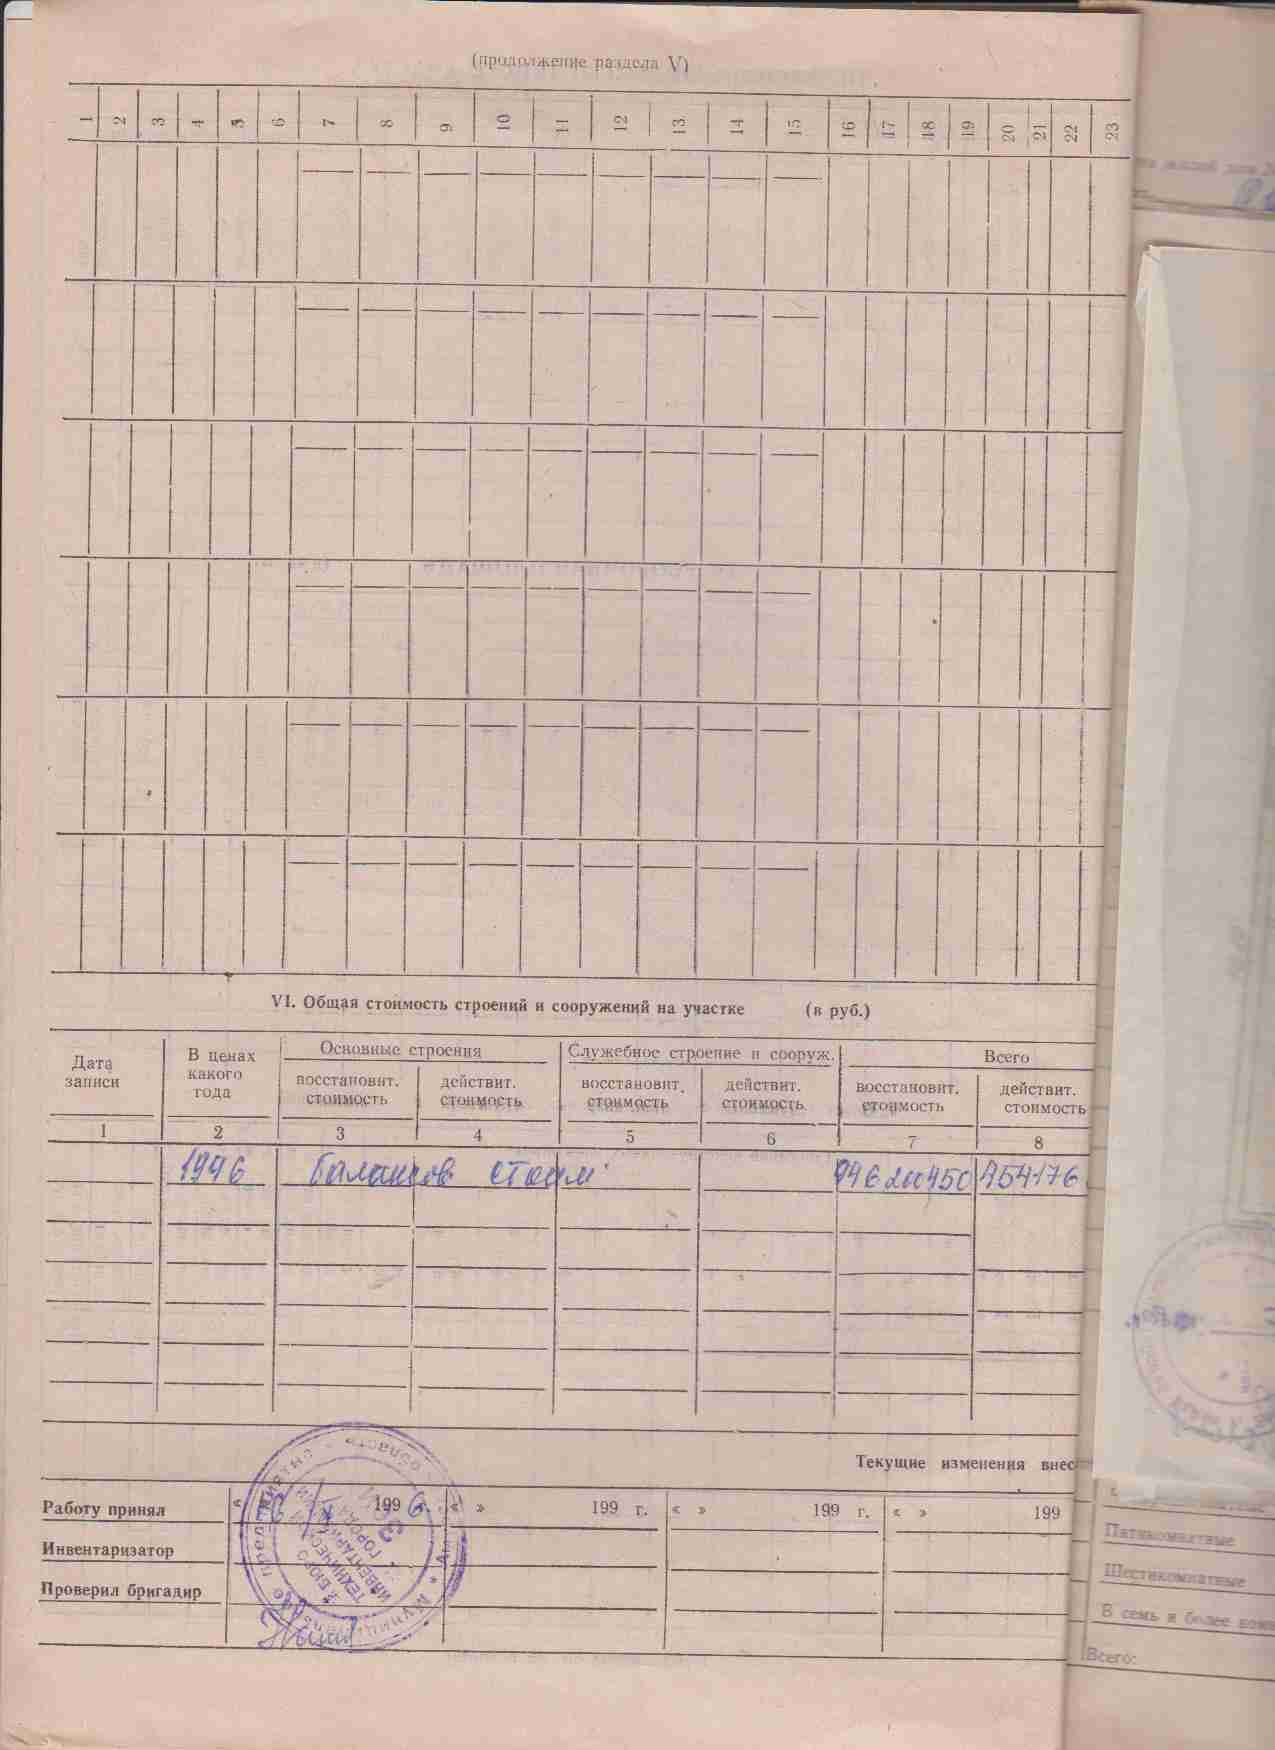 (продолжение раздела V)
1 2 3 4 5 6 7 8 9 10 11 12 13 14 15 16 17 18 19 20 21 22 23
VI. Общая стоимость строений и сооружений на участке (в руб.)
Дата записи
В ценах какого года
Основные строения
Служебное строение и сооруж.
Всего
восстановит. стоимость
действит. стоимость
восстановит. стоимость
действит. стоимость
восстановит. стоимость
действит. стоимость
1 2 3 4 5 6 7 8
1996 балансов стоим
Текущие изменения внес
Работу принял 199 6 « » 199 г. « » 199 г. « » 199
Инвентаризатор
Проверил бригадир
БЮРО
ТЕХНИЧЕСКОЙ
ИНВЕНТАРИЗАЦИИ
Пятикомнатные
Шестикомнатные
В семь и более
Всего: